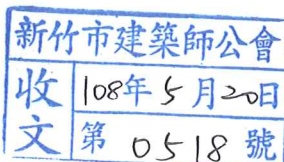 新竹市建築師公會
收文
108年5月20日
第0518號